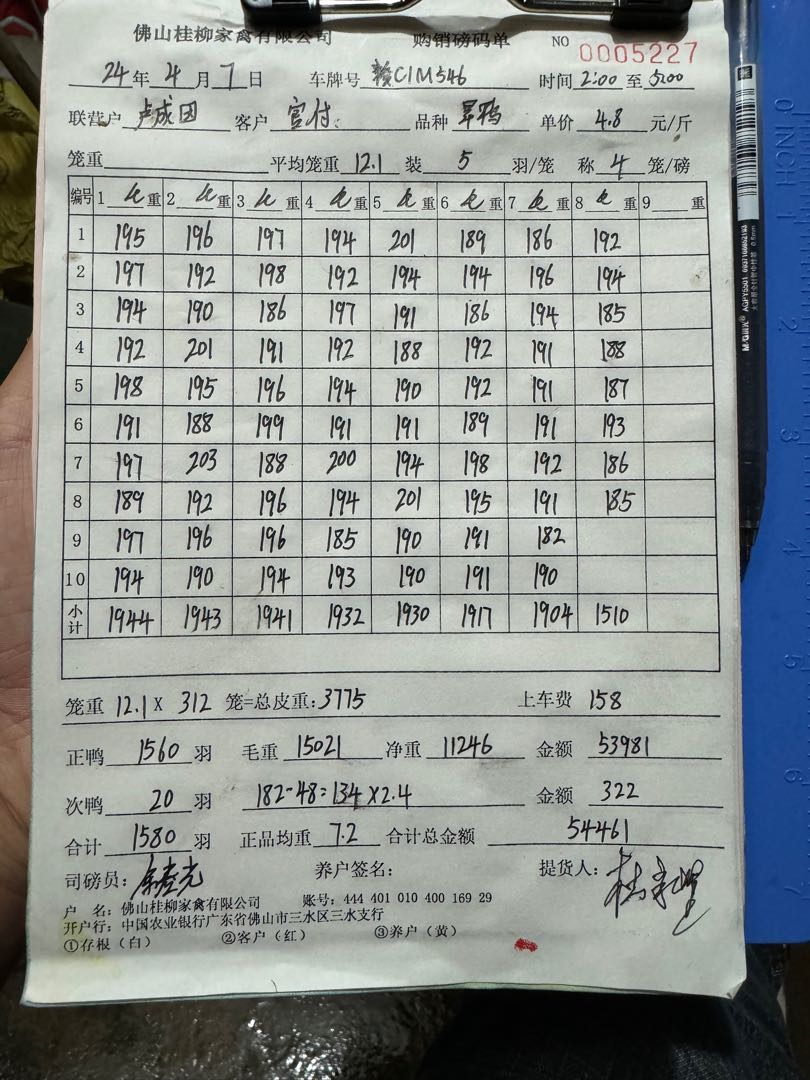 佛山桂柳家禽有限公司 购销磅码单 NO 0005227
24年4月7日 车牌号 赣C1M546 时间 2:00 至 5:00
联营户 卢成因 客户 宫付 品种 旱鸭 单价 4.8 元/斤
笼重 平均笼重 12.1 装 5 羽/笼 称 4 笼/磅
编号 1 毛 重 2 毛 重 3 毛 重 4 毛 重 5 毛 重 6 毛 重 7 毛 重 8 毛 重 9 重
1 195 196 197 194 201 189 186 192
2 197 192 198 192 194 194 196 194
3 194 190 186 197 191 186 194 185
4 192 201 191 192 188 192 191 188
5 198 195 196 194 190 192 191 187
6 191 188 199 191 191 189 191 193
7 197 203 188 200 194 198 192 186
8 189 192 196 194 201 195 191 185
9 197 196 196 185 190 191 182
10 194 190 194 193 190 191 190
小计 1944 1943 1941 1932 1930 1917 1904 1510
笼重 12.1 X 312 笼=总皮重:3775 上车费 158
正鸭 1560 羽 毛重 15021 净重 11246 金额 53981
次鸭 20 羽 182-48=134 X2.4 金额 322
合计 1580 羽 正品均重 7.2 合计总金额 54461
司磅员: 养户签名: 提货人:
户 名: 佛山桂柳家禽有限公司 账号: 444 401 010 400 169 29
开户行: 中国农业银行广东省佛山市三水区三水支行
①存根(白) ②客户(红) ③养户(黄)
INCH
1
2
3
4
5
6
7
M&G AGPY5501
0.5mm